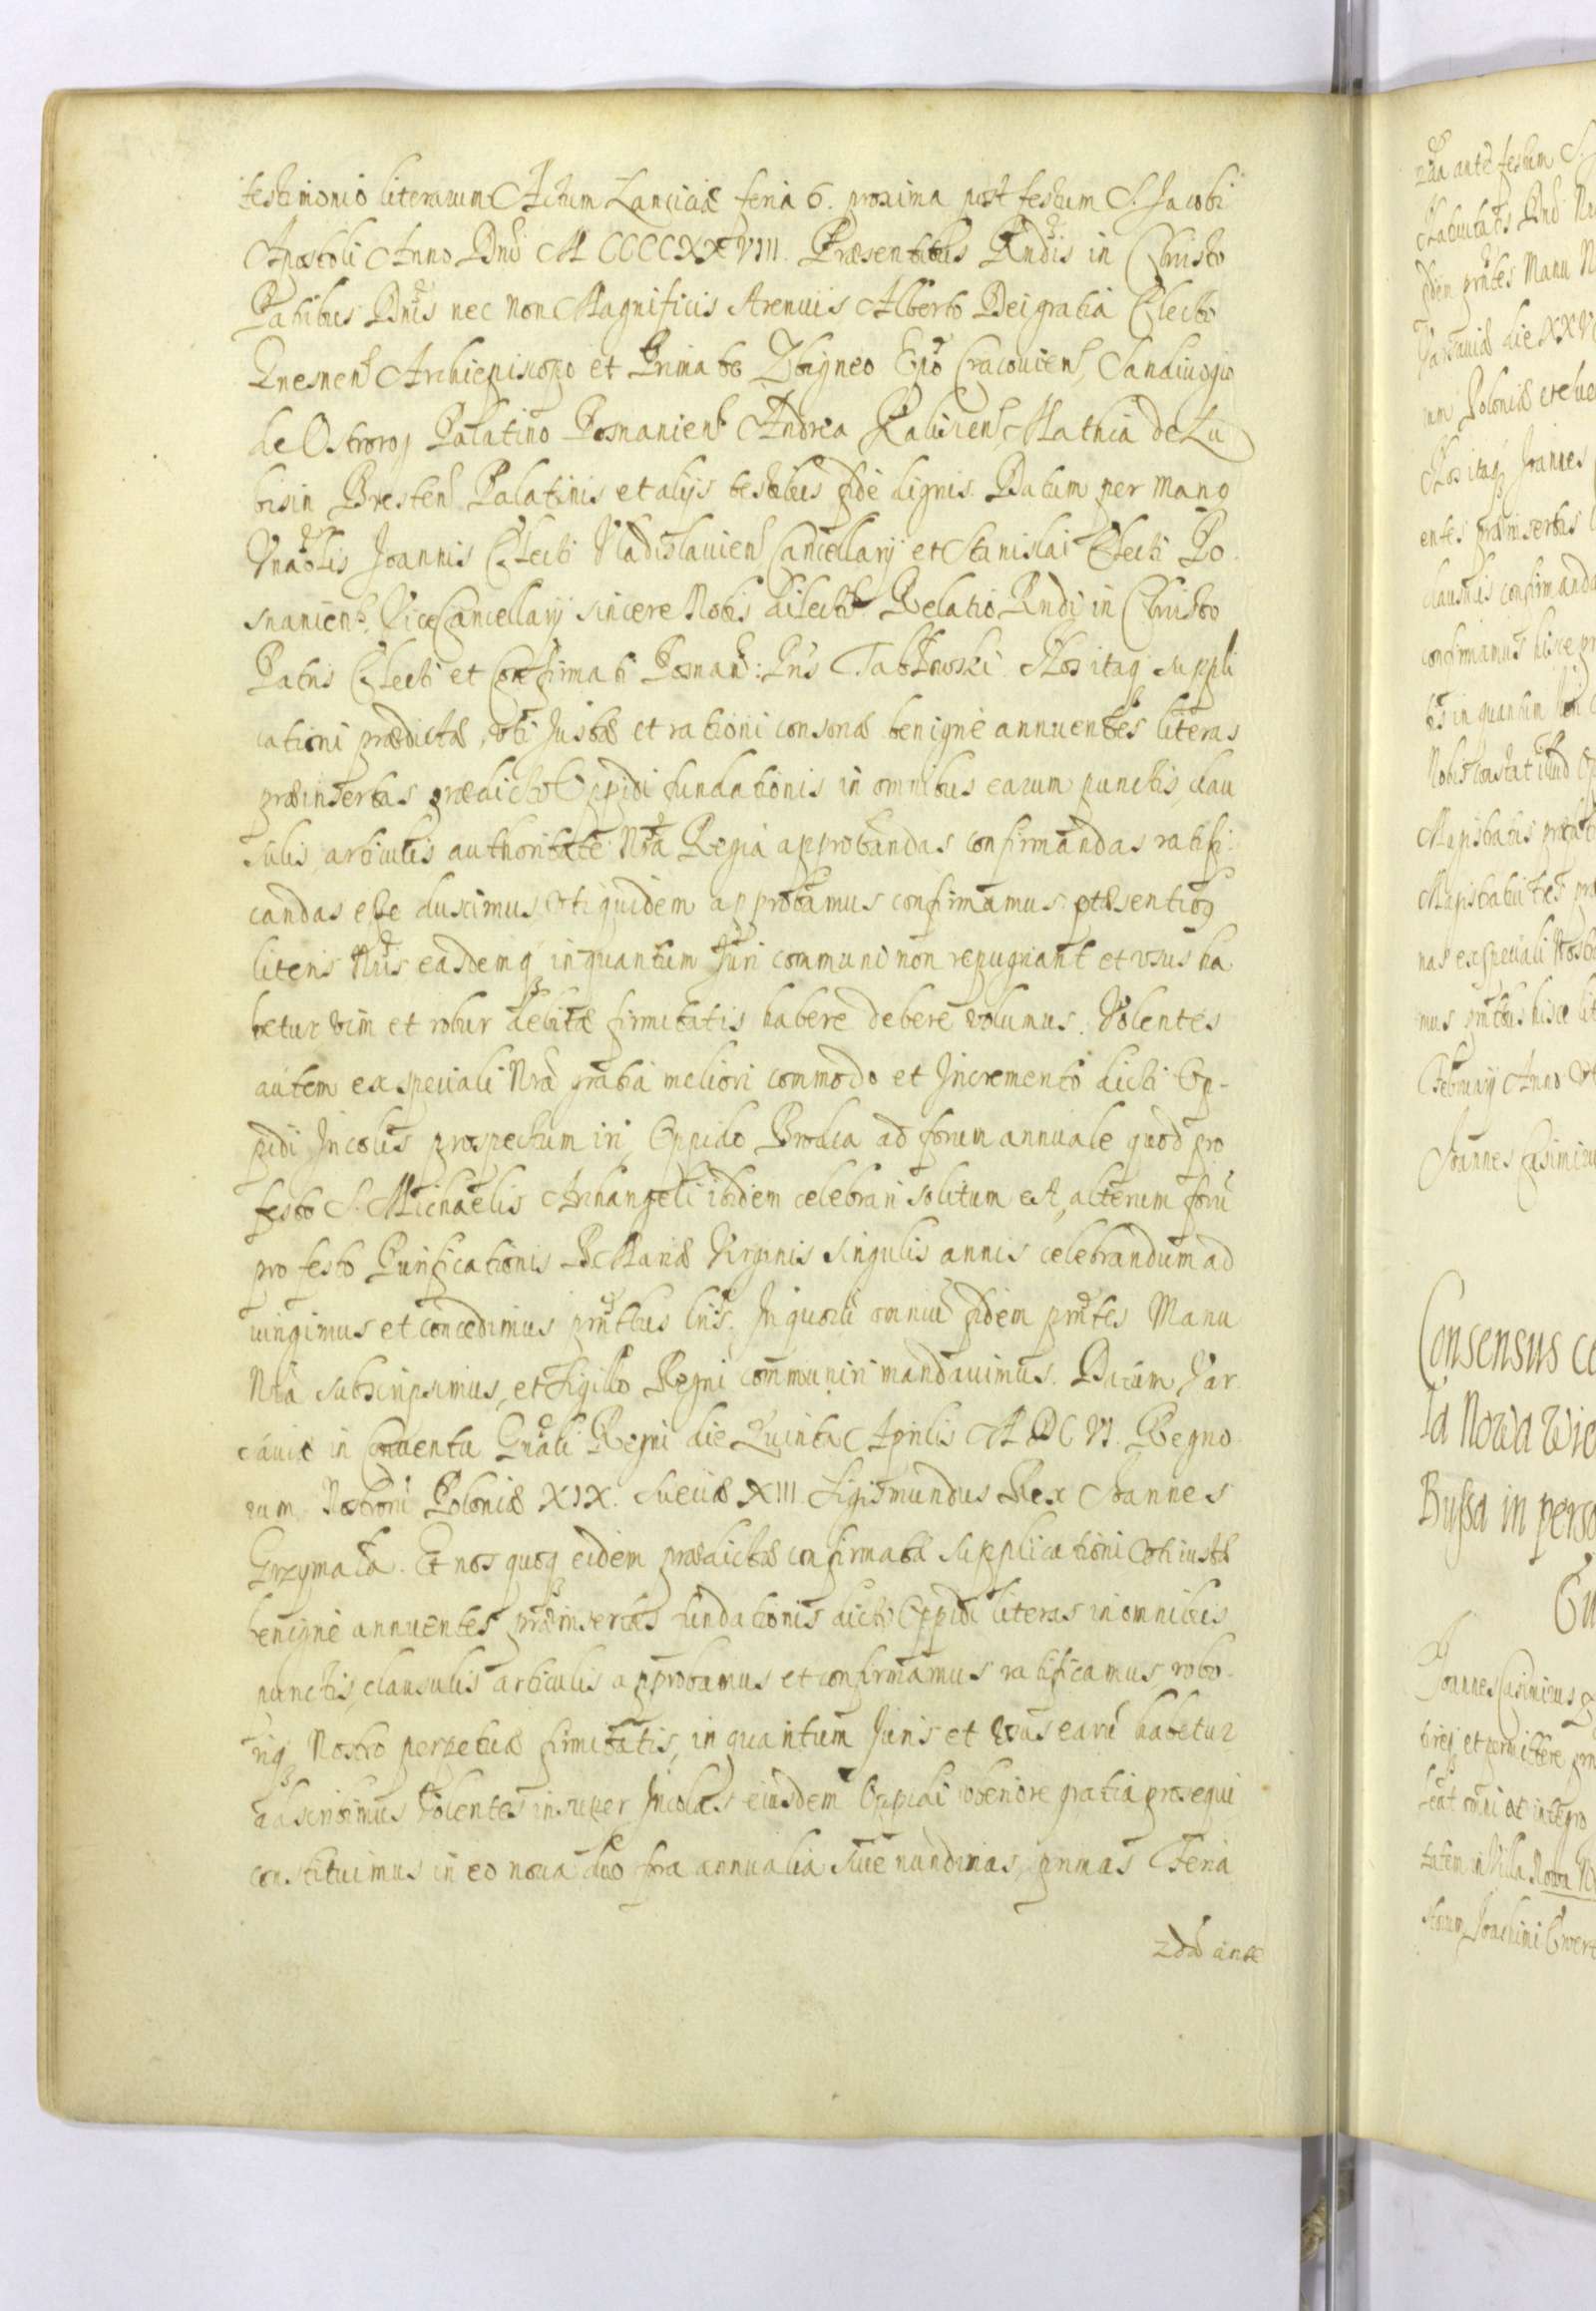 testimonio literarum Actum Lanciciæ feria 6. proxima post festum S. Jacobi
Apostoli Anno Dnī MCCCCXXVIII. Præsentibus Rndis in Christo
Patribus Dnis nec non Magnificis Strenuis Alberto Dei gratia Electo
Gnesnens Archiepiscopo et Primate Zbigneo Epo Cracouiens, Sandiuogio
de Ostrorog Palatino Posnaniens Andrea Kalisiens, Mathia de Lu
bisin Brestens Palatinis et alijs testibus fide dignis. Datum per mang
Vnablis Joannis Electi Vladislauiens Cancellarij et Stanislai Electi Po
snaniens. ViceCancellarij sincere Nobis dilect. Relatio Rndi in Christo
Patris Electi et Confirmati Posnan: Nos itaq suppli
cationi prædictæ, uti Justæ et rationi consonæ benigne annuentes literas
præinsertas prædicti Oppidi fundationis in omnibus earum punctis, clau
sulis, articulis authoritate Nra Regia approbandas confirmandas ratifi
candas esse duximus, uti quidem approbamus confirmamus
literis Nris easdemq in quantum Juri communi non repugnant et vsus ha
betur vim et robur debitæ firmitatis habere debere volumus. Volentes
autem ex speciali Nra gratia meliori commodo et Incremento dicti Op-
pidi Incolis prospectum iri, Oppido ad forum annuale quod pro
festo S. Michaelis Archangeli ibidem celebrari solitum est, alterum forū
pro festo Purificationis B. Mariæ Virginis singulis annis celebrandum ad
iungimus et concedimus prntbus lris. In quorū omniū fidem prntes Manu
Nra subscripsimus, et Sigillo Regni communiri mandauimus. Datum Var
sauiæ in Conuentu Gnali Regni die Quinta Aprilis MDCVI. Regno
rum Nostrorū Poloniæ XIX. Sueciæ XIII. Sigismundus Rex Joannes
Grzymała. Et nos quoq eidem prædictæ confirmatæ supplicationi uti iustæ
benigne annuentes præinsertas fundationis dicti Oppidi literas in omnibus
punctis, clausulis articulis approbamus et confirmamus ratificamus, robo
riq Nostro perpetuæ firmitatis, in quantum Juris et vsus earū habetur
adscribimus Volentes insuper Incolas eiusdem Oppidi vberiore gratia prosequi
constituimus in eo noua duo fora annualia siue nundinas, primas Feria
2da ante
2da ante festum S.
fidem prntes Manu
die XXVI
um Poloniæ
Nos itaq Joannes
entes præinsertas
clausulis confirmanda
confirmamus hisce
in quantum
Nobis constat illud
Magistratus
nas ex speciali Nostr
mus prntbus hisce lit
Februarij Anno
Joannes Casimirus
Consensus
ła Nowa
Bussa in perso
Joannes Casimirus
et permittere
omni et integro
in Villa Nowa
Joachimi